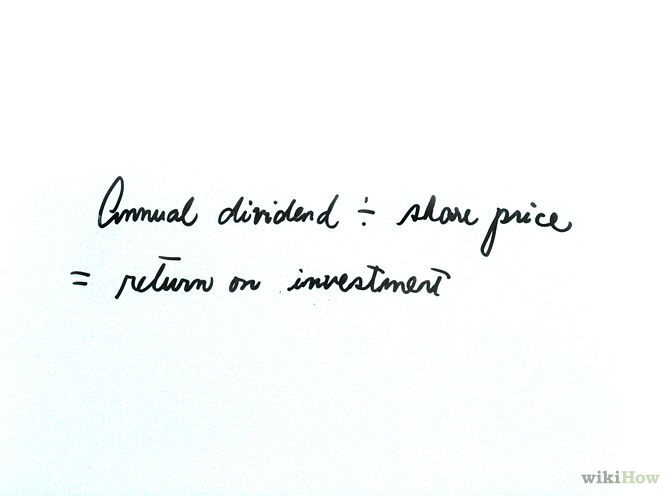 Annual dividend ÷ share price
= return on investment
wikiHow